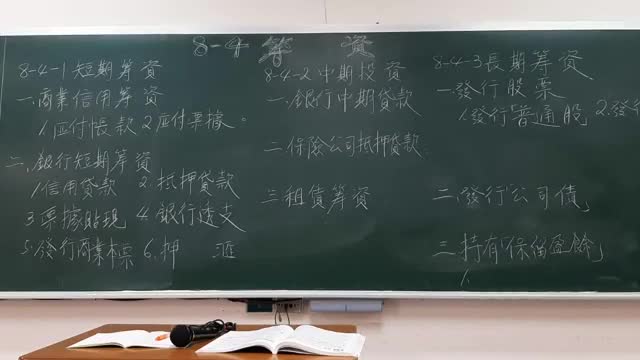 8-4 籌 資
8-4-1 短期籌資
一.商業信用籌資
1.應付帳款 2.應付票據。
二.銀行短期籌資
1.信用貸款 2.抵押貸款
3.票據貼現 4.銀行透支
5.發行商業本票 6.押 匯
8-4-2 中期投資
一.銀行中期貸款
二.保險公司抵押貸款
三.租賃籌資
8-4-3 長期籌資
一.發行股票
1.發行「普通股 2.發行
二.發行「公司債」
三.持有「保留盈餘」